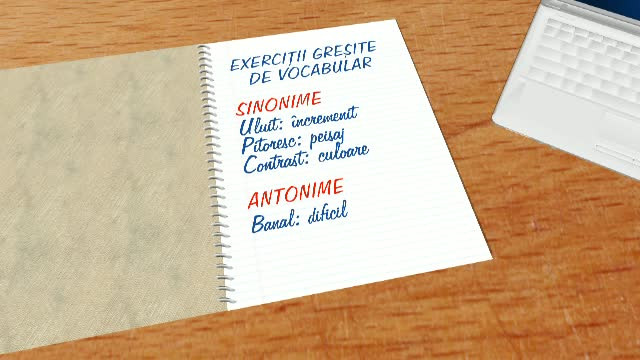 EXERCIȚII GREȘITE
DE VOCABULAR
SINONIME
Uluit: încremenit
Pitoresc: peisaj
Contrast: culoare
ANTONIME
Banal: dificil